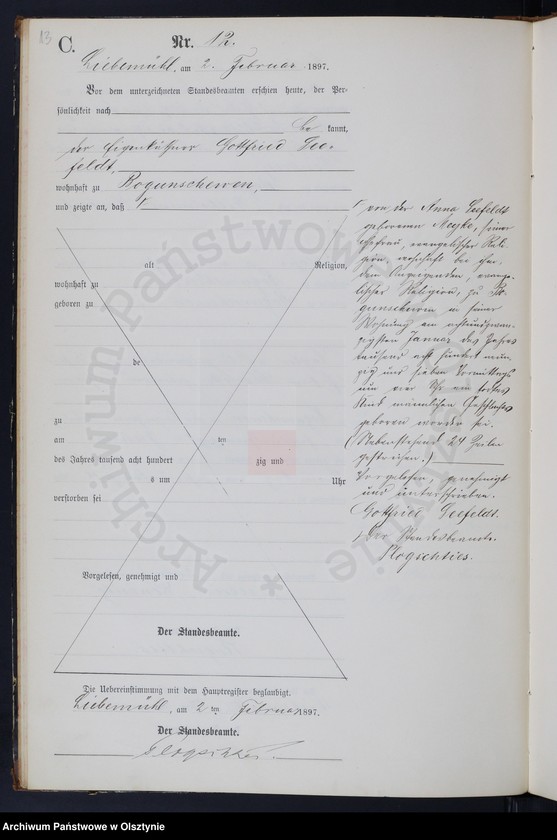 13
C.
Nr. 12.
Liebemühl, am 2. Februar 1897.
Vor dem unterzeichneten Standesbeamten erschien heute, der Per-
sönlichkeit nach
be kannt,
der Eigenkäthner Gottfried See-
feldt,
wohnhaft zu Bogunschewen,
und zeigte an, daß
alt Religion,
wohnhaft zu
geboren zu
de
zu
am ten
des Jahres tausend acht hundert zig und
s um Uhr
verstorben sei
Vorgelesen, genehmigt und
Der Standesbeamte.
Die Uebereinstimmung mit dem Hauptregister beglaubigt.
Liebemühl, am 2 ten Februar 1897.
Der Standesbeamte.
von der Anna Seefeldt
geborenen, seiner
Ehefrau, evangelischer Reli-
gion, wohnhaft bei
dem Anzeigenden, evange-
lischer Religion, zu Bo-
gunschewen in seiner
Wohnung am achtundzwan-
zigsten Januar des Jahres
tausend acht hundert neun-
zig und sieben Vormittags
um vier Uhr ein todtes
Kind männlichen Geschlechts
geboren worden sei.
(Nebenstehend 24 Zeilen
gestrichen.)
Vorgelesen, genehmigt
und unterschrieben.
Gottfried Seefeldt.
Der Standesbeamte.
Archiwum Państwowe w Olsztynie
Archiwum Państwowe w Olsztynie